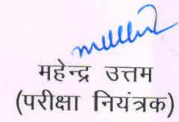 महेन्द्र उत्तम
(परीक्षा नियंत्रक)